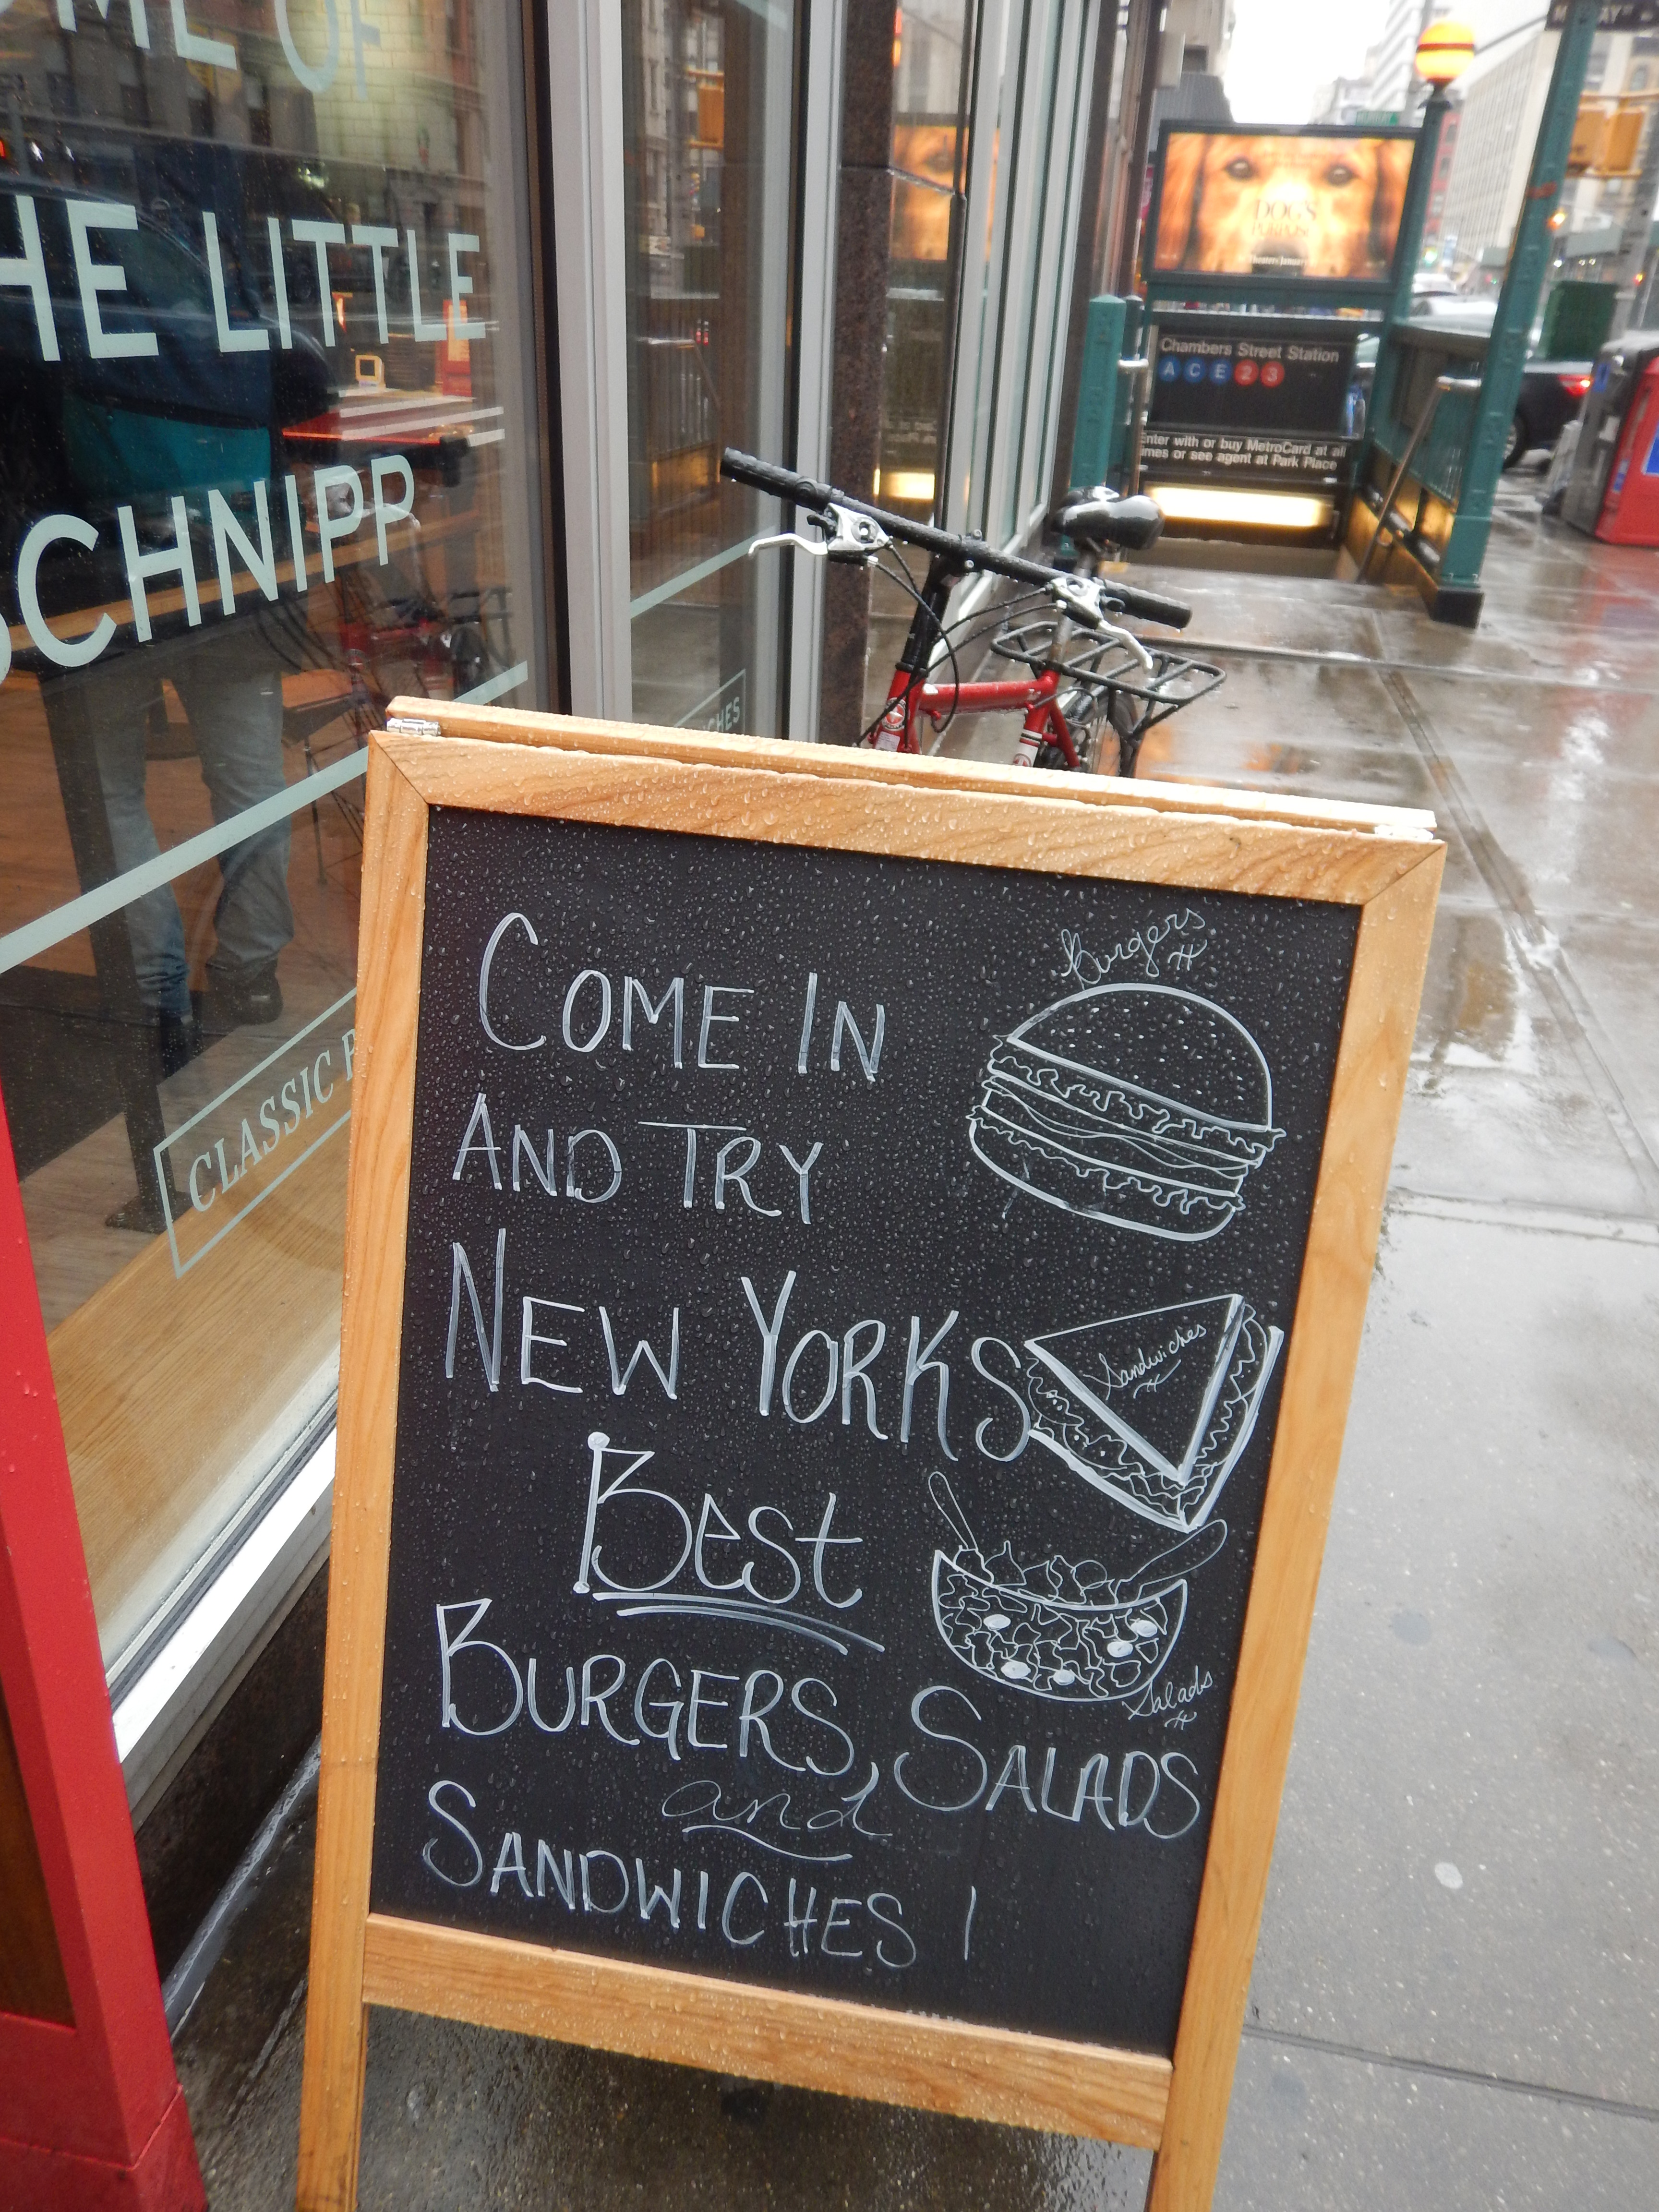 OF
HE LITTLE
SCHNIPP
CLASSIC
CHES
DOG'S
PURPOSE
In Theaters January
Chambers Street Station
A C E 2 3
Enter with or buy MetroCard at all
times or see agent at Park Place
COME IN
AND TRY
NEW YORKS
Best
BURGERS, SALADS
and
SANDWICHES !
Burgers
Sandwiches
Salads